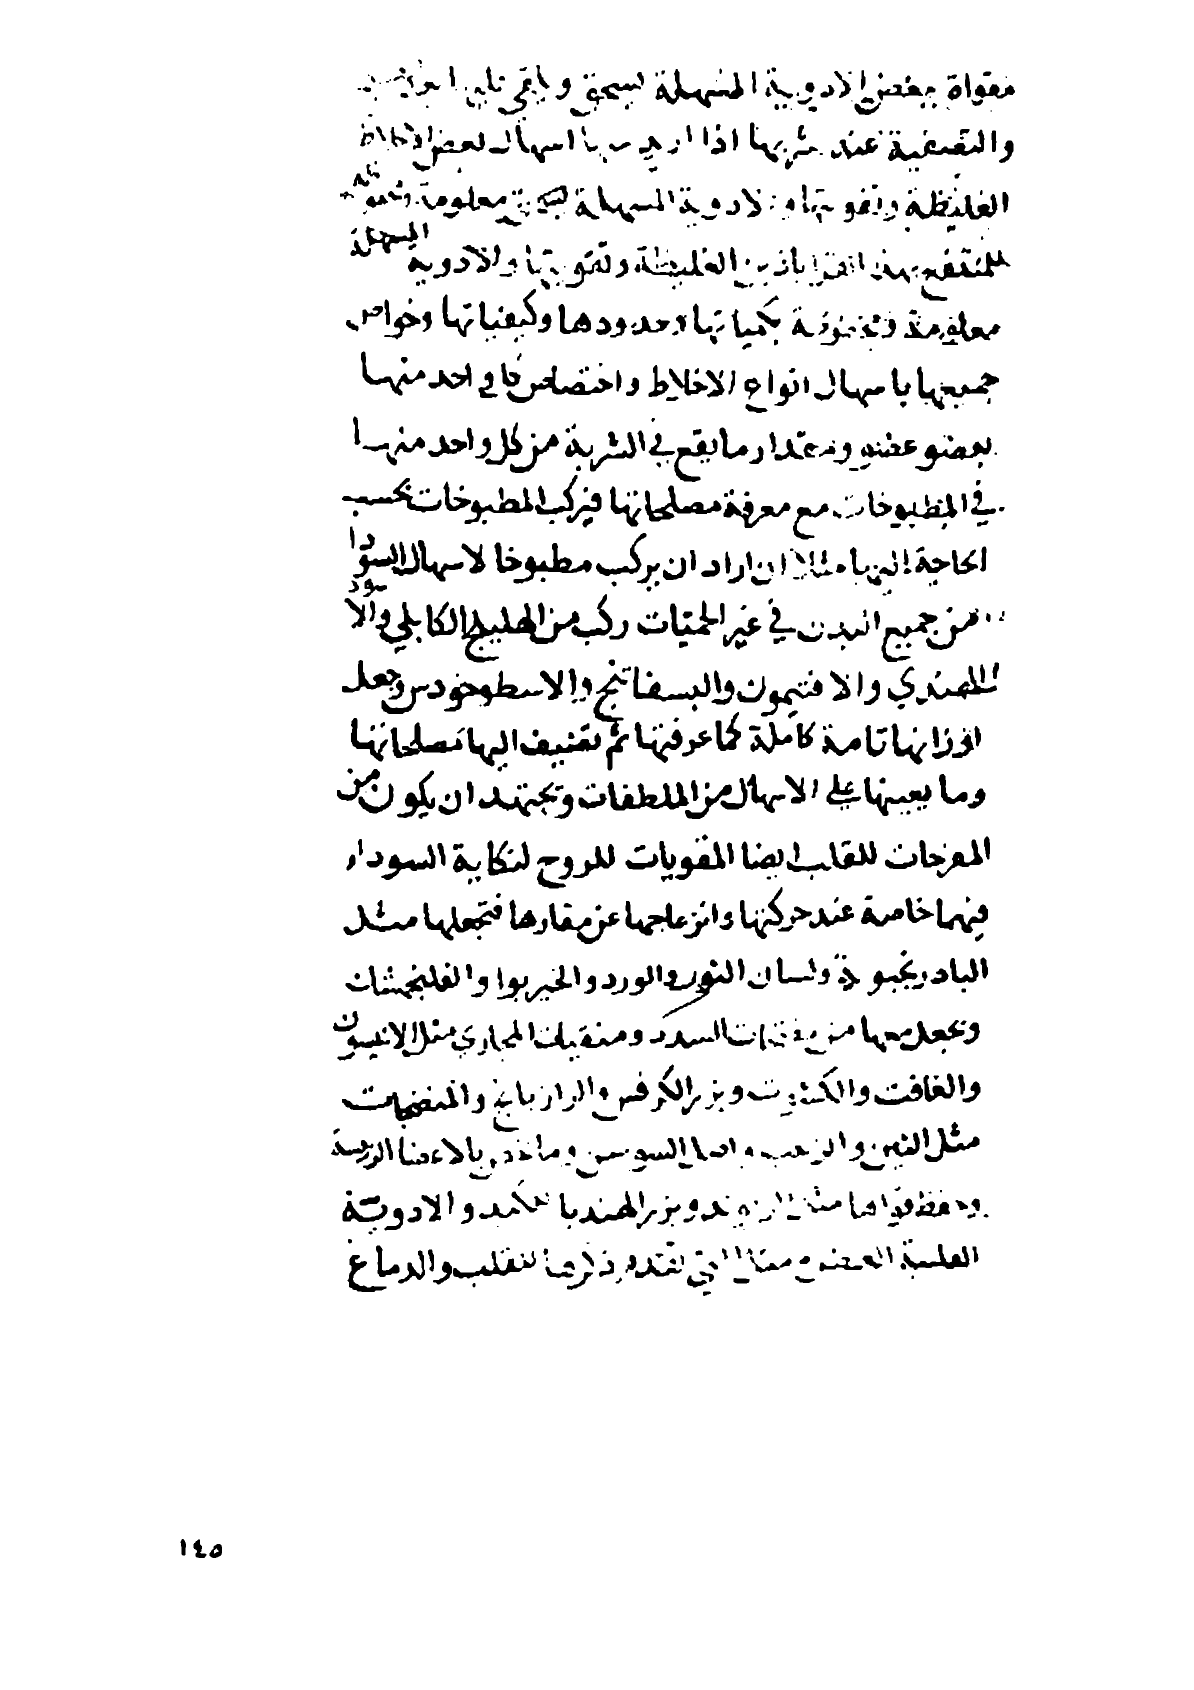 مقواة ببعض الادوية المسهلة ليسحق ويلقى
والتصفية عند شربها اذا اريد بها اسهال بعض الاخلاط
الغليظة وتقويتها والادوية المسهلة معلومة
للمنتفع بهذا القراباذين الغليظة وتقويتها والادوية المسهلة
معلومة بكمياتها وحدودها وكيفياتها وخواص
جميعها باسهال انواع الاخلاط واختصاص كل واحد منها
بعضو عضو ومقدار ما يقع في الشربة من كل واحد منها
في المطبوخات مع معرفة مصلحاتها فيركب المطبوخات بحسب
الحاجة اليها مثلا ان اراد ان يركب مطبوخا لاسهال السودا
من جميع البدن في غير الحميات ركب من الهليلج الكابلي والاسود
الهندي والافتيمون والبسفاتنج والاسطوخودس وجعل
اوزانها تامة كاملة كما عرفتها ثم تضيف اليها مصلحاتها
وما يعينها على الاسهال من الملطفات وتجتهد ان يكون من
المفرحات للقلب ايضا المقويات للروح لنكاية السوداء
فيهما خاصة عند حركتها وانزعاجها عن مقارها فتجعلها مثل
البادرنجبوة ولسان الثور والورد والخيربوا والفلنجمشك
وتجعل معها من مفتحات السدد ومنقيات المجاري مثل الانيسون
والغافت والكشوث وبزر الكرفس والرازيانج والمنضجات
مثل التين والزبيب واصل السوس وما خص بالاعضا الرييسة
وحفظ قواها مثل وبزر الهندبا للكبد والادوية
القلبية مثل التي تقدم ذكرها للقلب والدماغ
١٤٥